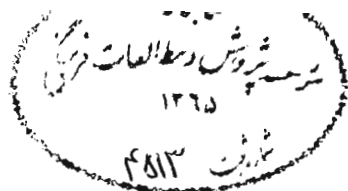 موسسه پژوهش و مطالعات فرهنگی
۱۳۶۵
شماره ثبت ۴۵۱۳